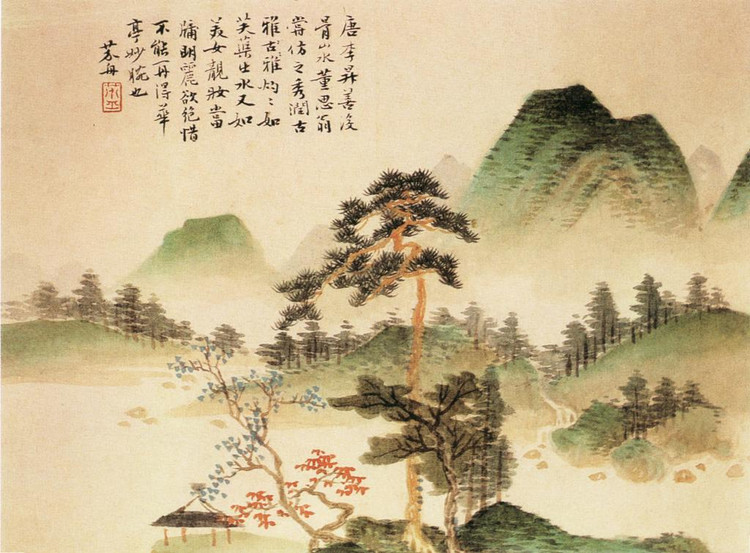 唐李昇善沒
骨山水董思翁
嘗仿之秀潤古
雅古雅灼々如
芙蕖出水又如
美女靚妝當
牖明麗欲絕惜
不能再得華
亭妙腕也